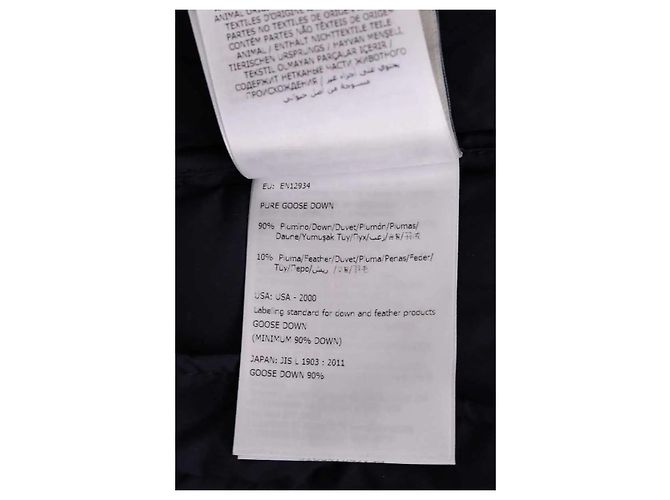 TEXTILES D'ORIGINE
PARTES NO TEXTILES DE ORIGEN
CONTÉM PARTES NÃO TÊXTEIS DE ORIGEM
ANIMAL / ENTHÄLT NICHTTEXTILE TEILE
TIERISCHEN URSPRUNGS / HAYVAN MENŞELİ
TEKSTİL OLMAYAN PARÇALAR İÇERİR /
СОДЕРЖИТ НЕТКАНЫЕ ЧАСТИ ЖИВОТНОГО
ПРОИСХОЖДЕНИЯ / يحتوي على أجزاء غير
منسوجة من أصل حيواني
EU: EN12934
PURE GOOSE DOWN
90% Piumino/Down/Duvet/Plumón/Plumas/
Daune/Yumuşak Tüy/Пух/زغب/
10% Piuma/Feather/Duvet/Pluma/Penas/Feder/
Tüy/Перо/ريش/
USA: USA - 2000
Labeling standard for down and feather products
GOOSE DOWN
(MINIMUM 90% DOWN)
JAPAN: JIS L 1903 : 2011
GOOSE DOWN 90%